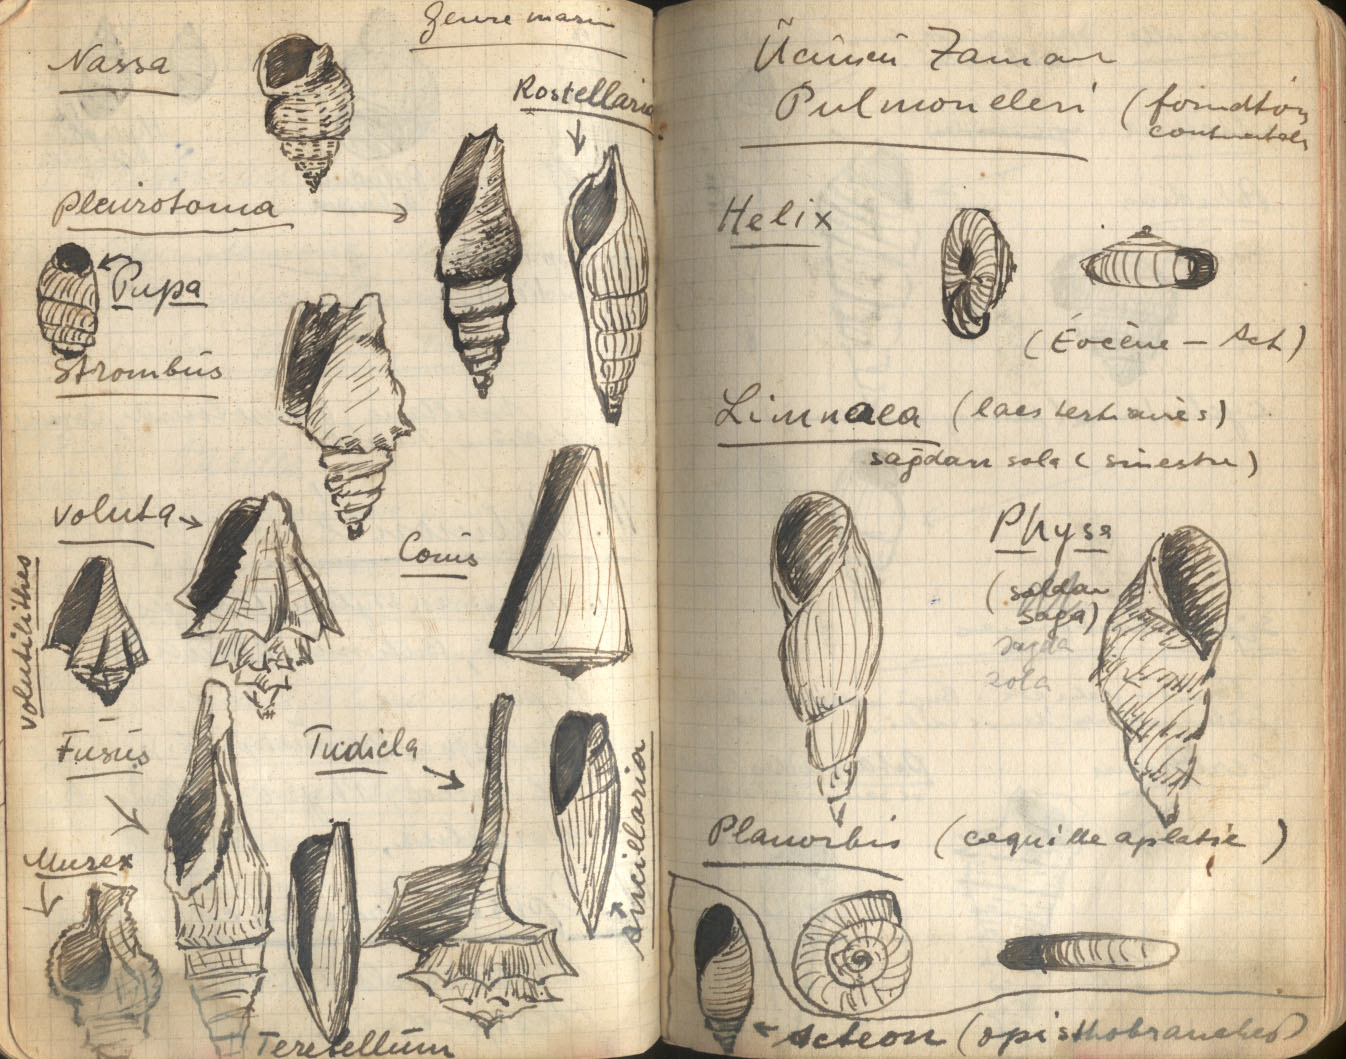 Genre marin
Nassa
Rostellaria
Pleurotoma
Pupa
Strombüs
Voluta
Volutilithes
Conüs
Füsüs
Tudicla
Ancillaria
Murex
Terebellüm
Üçüncü Zaman
Pulmoneleri (
Helix
(Éocène – Act)
Limnaea (lacs tertiaires)
sağdan sola (sinestre)
Physa
(soldan
sağa)
sağda
sola
Planorbis (coquille aplatie)
Acteon (opisthobranches)